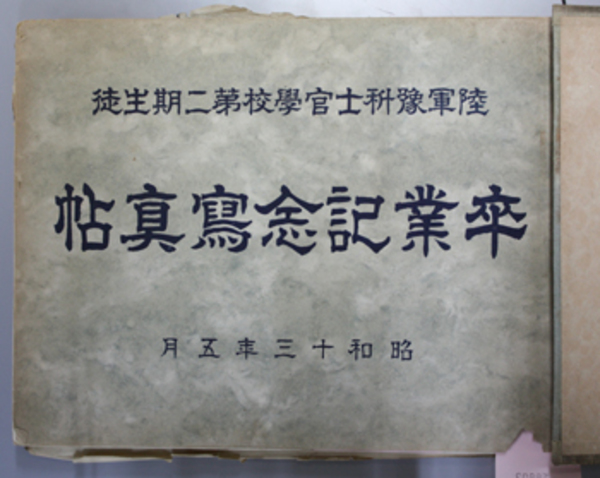 陸軍豫科士官學校第二期生徒
卒業記念寫眞帖
昭和十三年五月